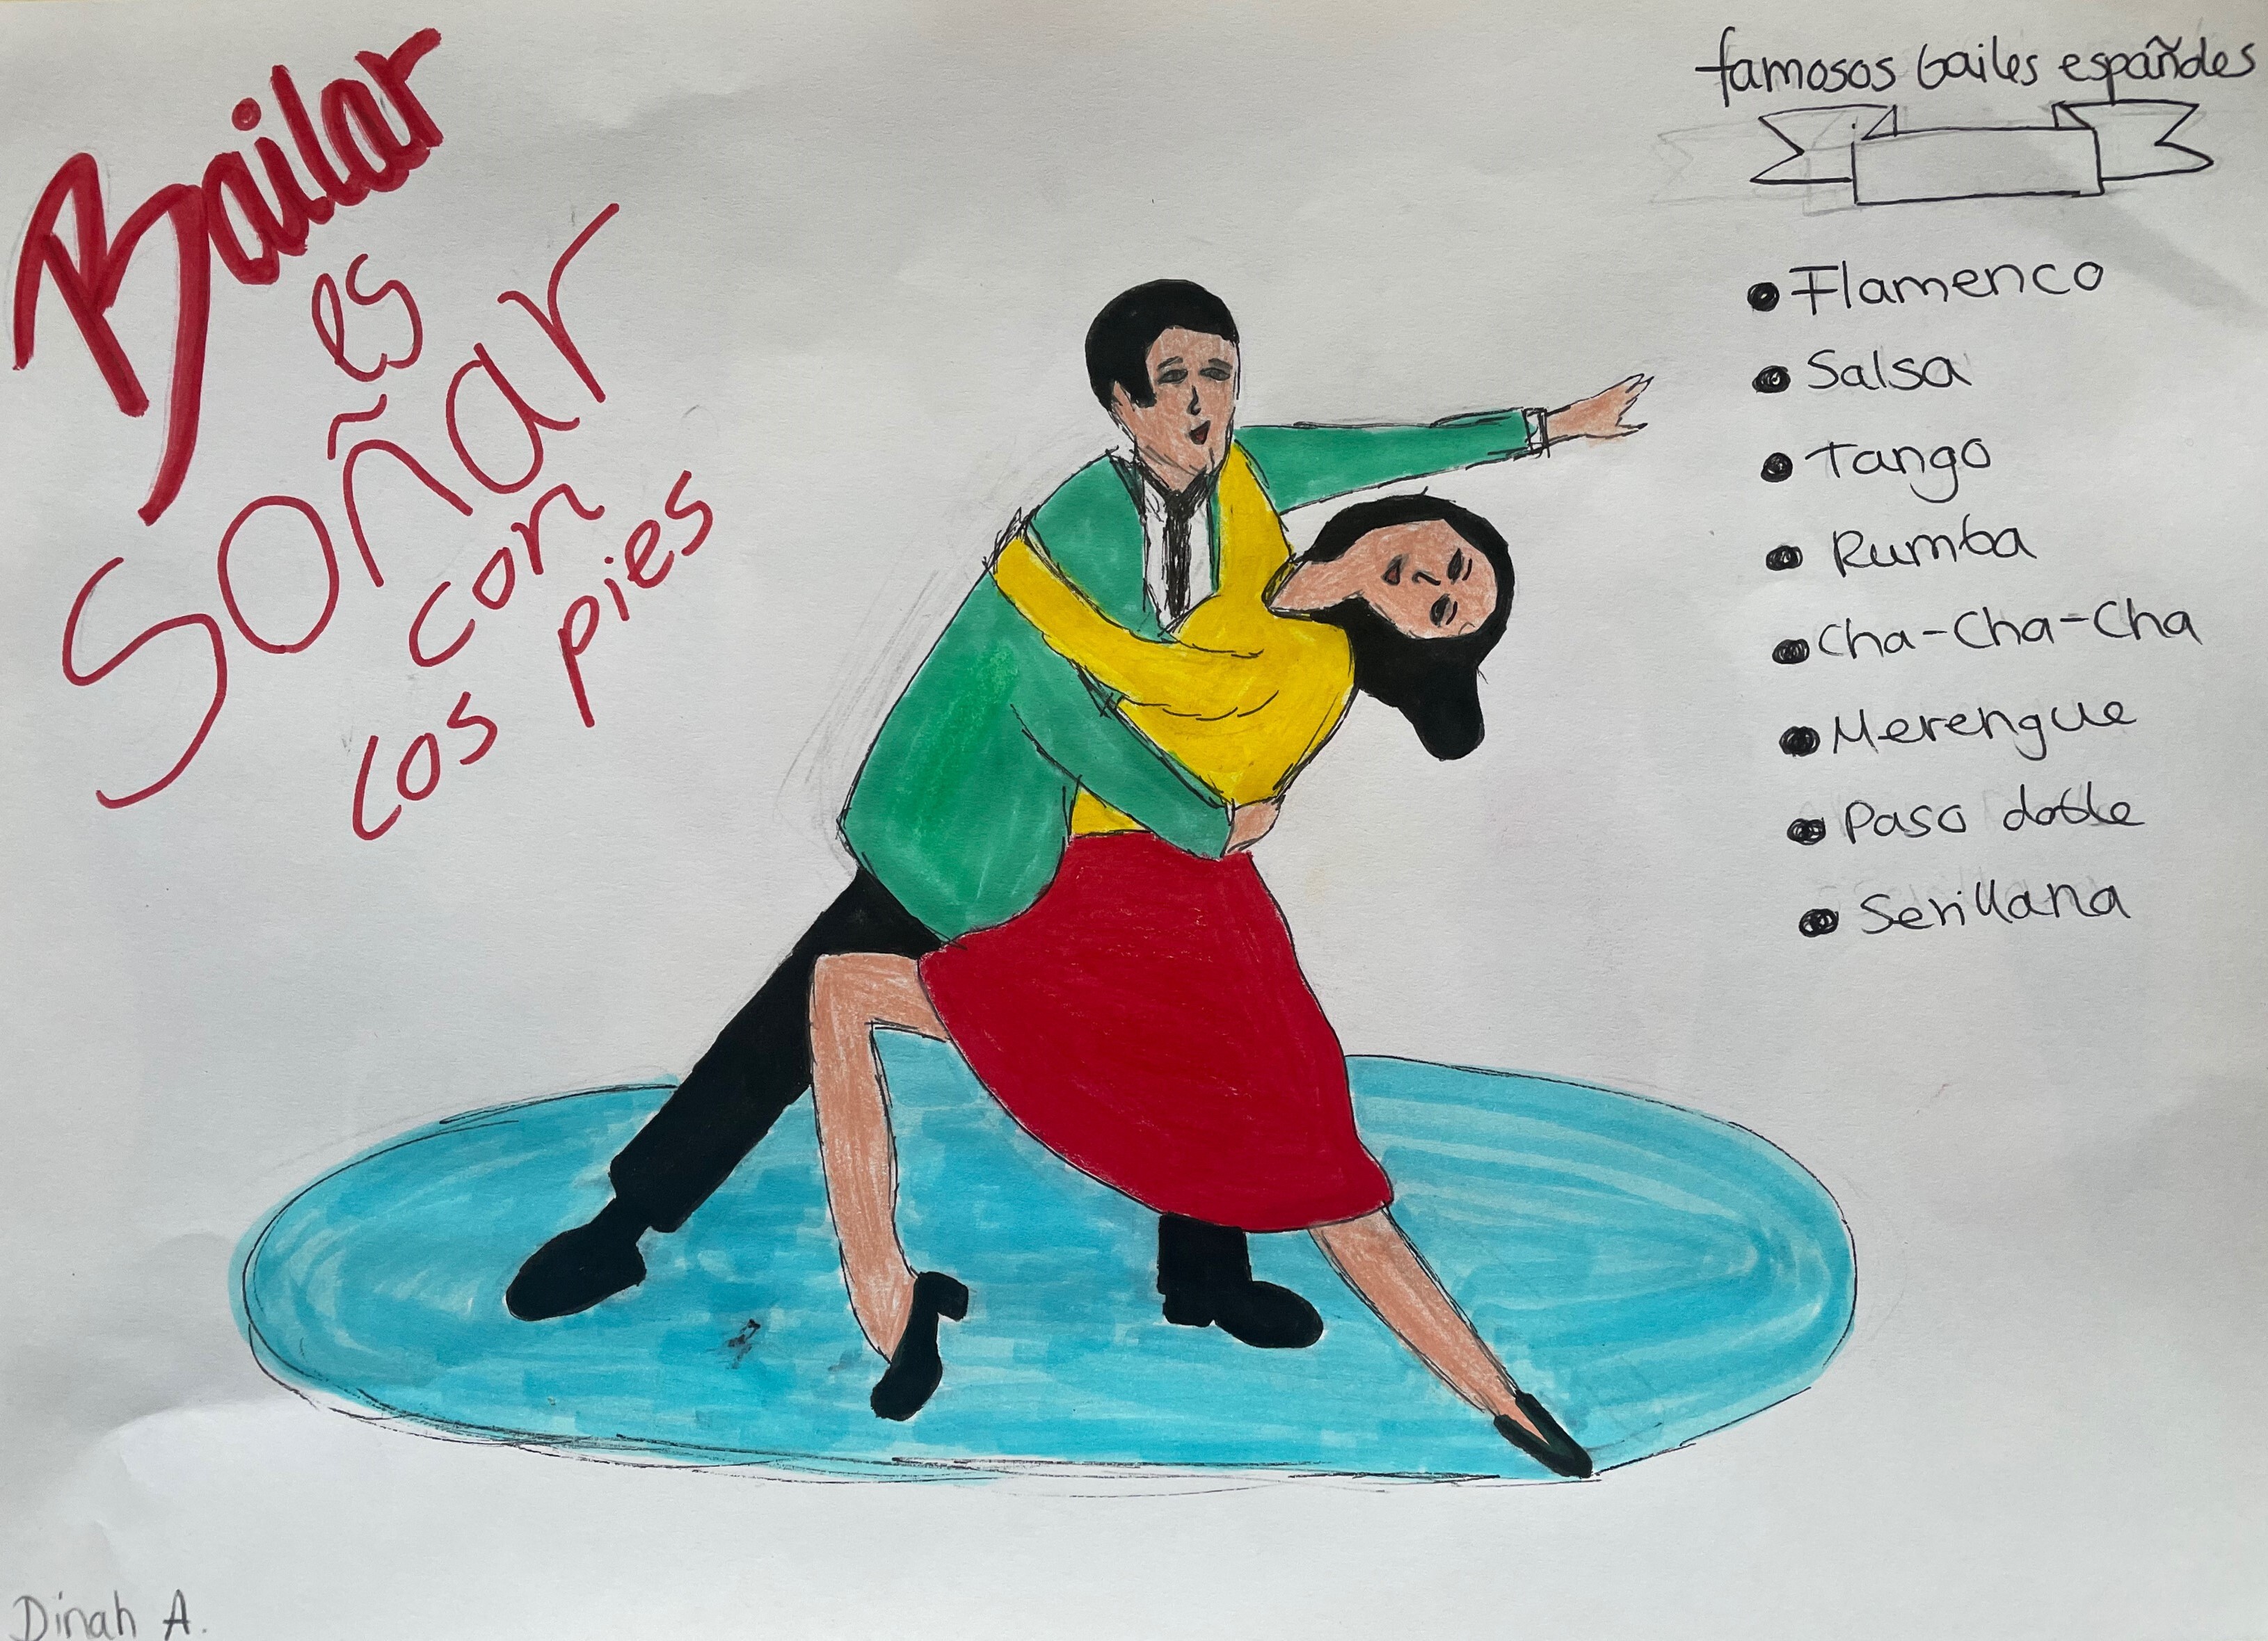 Bailar
es
soñar
con
los pies
famosos bailes españoles
Flamenco
Salsa
Tango
Rumba
Cha-Cha-Cha
Merengue
Paso doble
Sevillana
Dinah A.